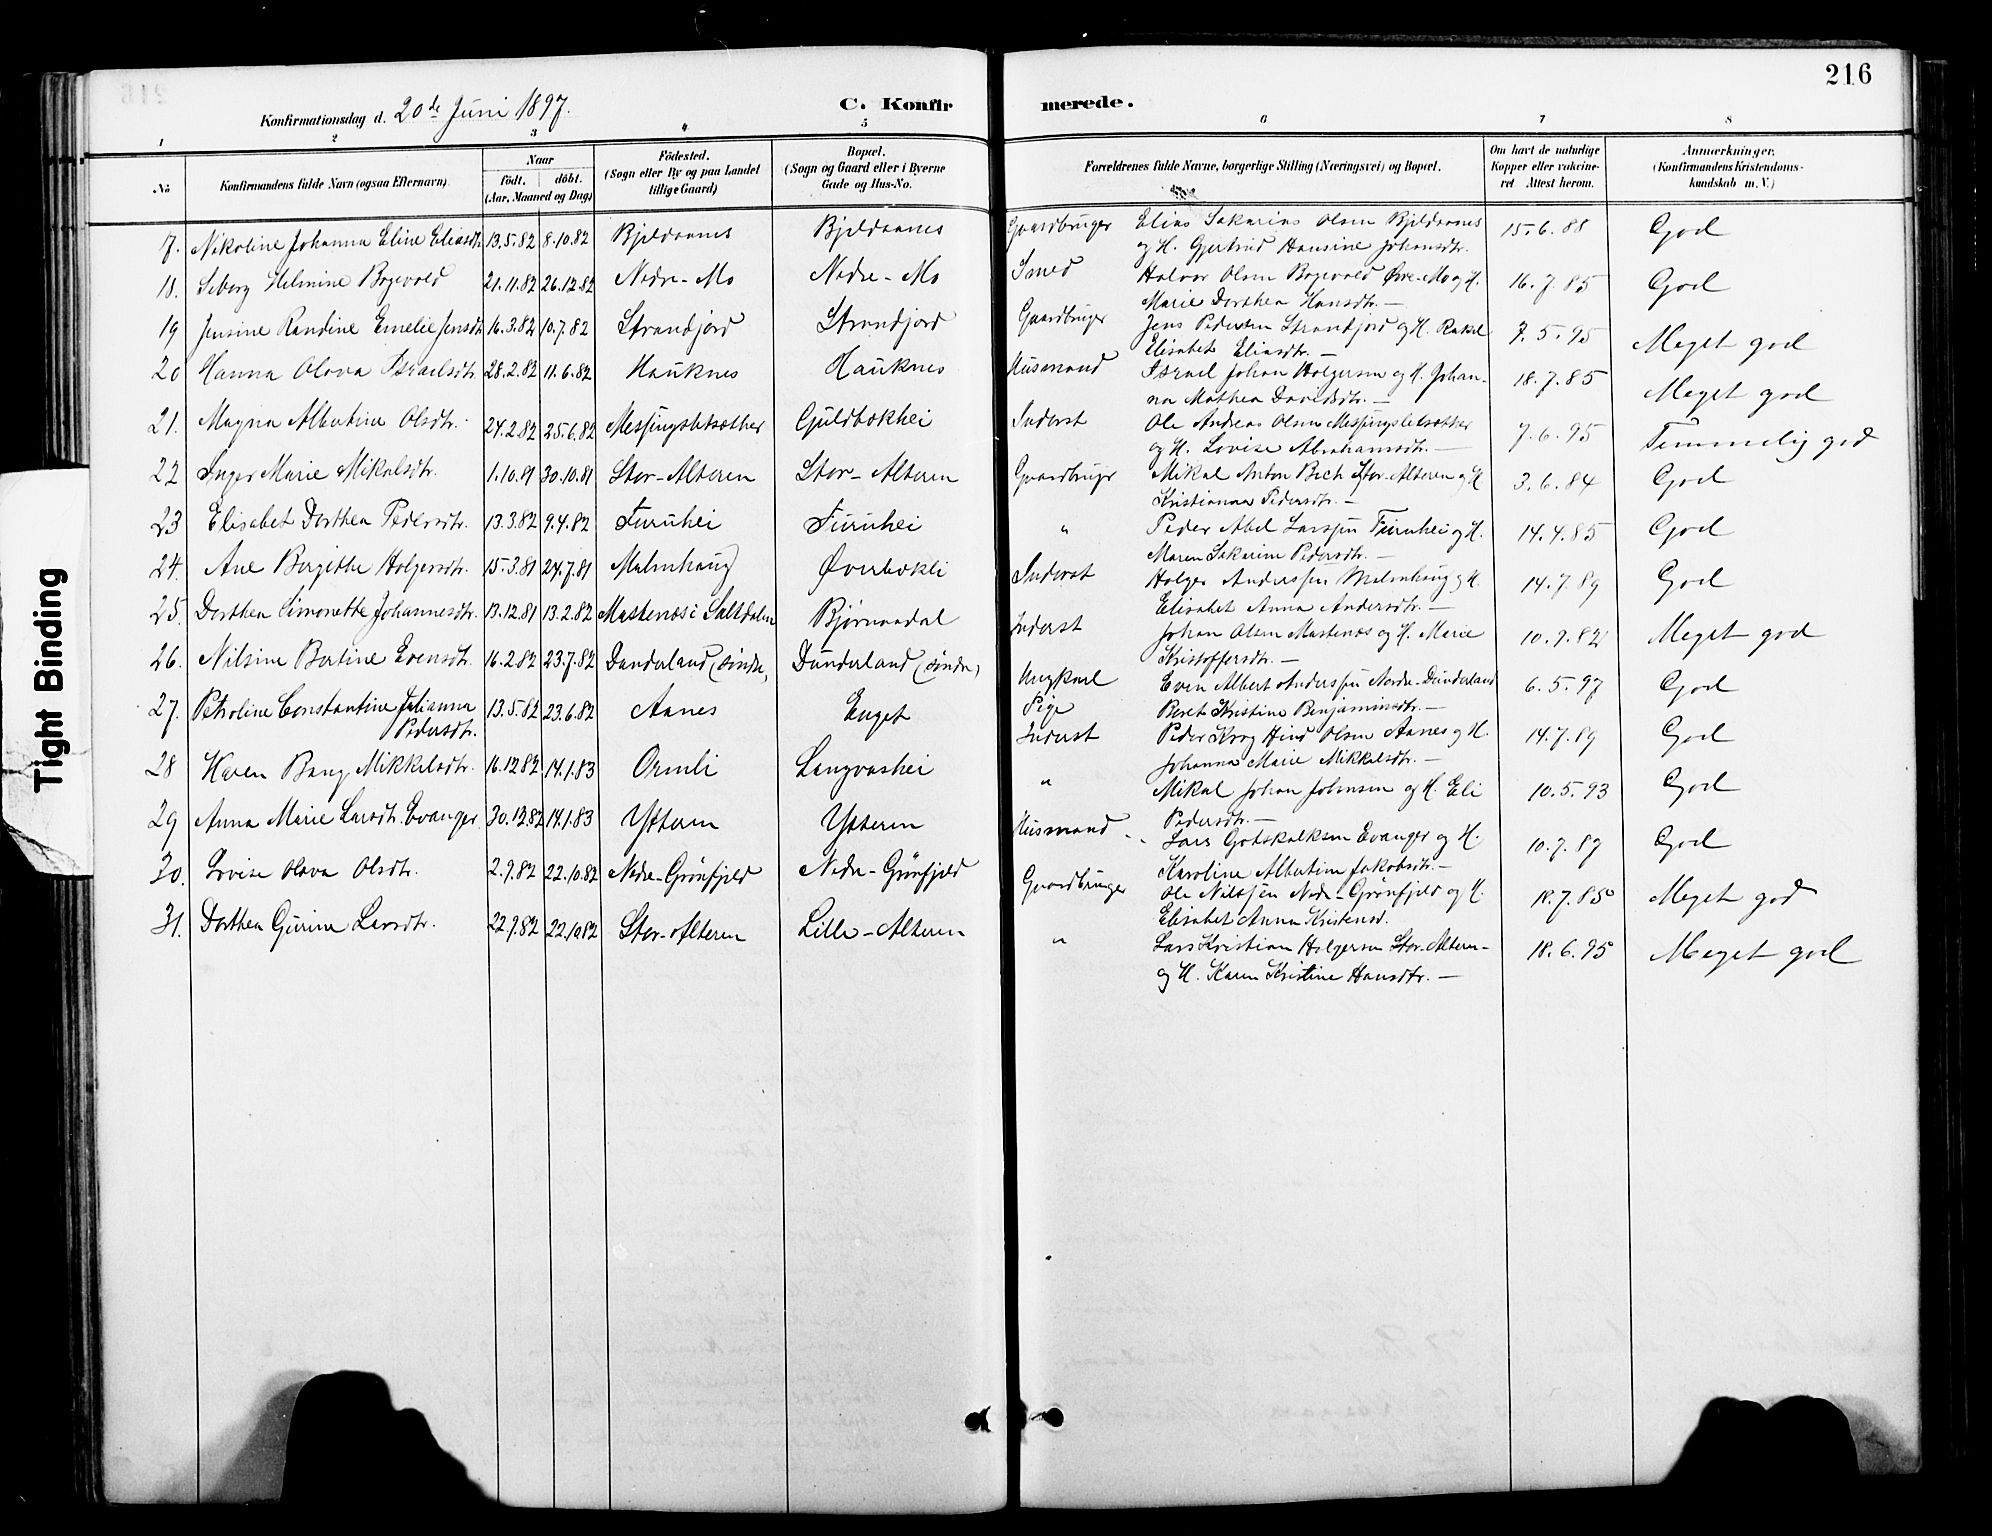 216
Konfirmationsdag d. 20de Juni 1897.
C. Konfirmerede.
1 2 3 4 5 6 7 8
No
Konfirmandens fulde Navn (ogsaa Efternavn).
Naar
födt. döbt.
(Aar, Maaned og Dag)
Födested.
(Sogn eller By og paa Landet
tillige Gaard)
Bopæl.
(Sogn og Gaard eller i Byerne
Gade og Hus-No.
Forældrenes fulde Navne, borgerlige Stilling (Næringsvei) og Bopæl.
Om havt de naturlige
Kopper eller vakcine-
ret Attest herom.
Anmærkninger,
(Konfirmandens Kristendoms-
kundskab m. V.)
7. Nikoline Johanna Eline Eliasdtr. 13.5.82 8.10.82 Bjeldaanes Bjeldaanes Gaardbruger Elias Sakarias Olsen Bjeldaanes 15.6.88 God
og H. Gjertrud Hansine Johansdtr.
18. Seborg Helmine Bogevold 21.11.82 26.12.82 Nedre-Mo Nedre-Mo Smed Halvor Olsen Bogevold Øvre-Mo og H. 16.7.85 God
Marie Dorthea Hansdtr. —
19 Jensine Randine Emelie Jensdtr 16.3.82 10.7.82 Strandjord Strandjord Gaardbruger Jens Pedersen Strandjord og H. Rakel 7.5.95 Meget god
Elisabet Eliasdtr. —
20 Hanna Olava Israelsdtr. 28.2.82 11.6.82 Hauknes Hauknes Husmand Israel Johan Holgersen og H. Johan- 18.7.85 Meget god
na Mathea Davidsdtr. —
21. Magna Albertine Olsdtr. 24.2.82 25.6.82 Messingsletsæther Guldbækhei Inderst Ole Andreas Olsen Messingsletsæther 7.6.95 Temmelig god
og H. Lovise Abrahamsdtr. —
22 Inger Marie Mikalsdtr. 1.10.81 30.10.81 Stor-Alteren Stor-Alteren Gaardbruger Mikal Anton Bech Stor-Alteren og H 3.6.84 God
Kristianna Pedersdtr. —
23 Elisabet Dorthea Pedersdtr. 13.3.82 9.4.82 Furuhei Furuhei " Peder Abel Larssen Furuhei og H. 14.4.85 God
Maren Sakarine Pedersdtr. —
24. Ane Birgitte Holgersdtr. 15.3.81 24.7.81 Malmhaug Øverbækli Inderst Holger Anderssen Malmhaug og H 14.7.89 God
Elisabet Anna Andersdtr. —
25. Dorthea Simonette Johannesdtr. 13.12.81 13.2.82 Mastenæs i Saltdalen Bjørnaadal Inderst Johan Olsen Mastenæs og H. Marie 10.7.82 Meget god
Kristoffersdtr. —
26. Nilsine Bertine Evensdtr. 16.2.82 23.7.82 Dunderland (söndre) Dunderland (söndre) Ungkarl Even Albert Anderssen Nordre-Dunderland 6.5.97 God
Pige Beret Kristine Benjaminsdtr. —
27. Petroline Constantine Julianna 13.5.82 23.6.82 Aanes Enget Inderst Peder Krog Hind Olsen Aanes og H. 14.7.89 God
Pedersdtr. Johanna Marie Mikkelsdtr. —
28 Karen Bang Mikkelsdtr. 16.12.82 14.1.83 Ormli Langvashei " Mikal Johan Johnsen og H. Eli 10.5.93 God
Pedersdtr. —
29 Anna Marie Larsdtr. Evanger 30.12.82 14.1.83 Ytteren Ytteren Husmand Lars Gotskalksen Evanger og H. 10.7.87 God
Karoline Albertine Jakobsdtr. —
30. Lovise Olava Olsdtr. 2.9.82 22.10.82 Nedre-Grønfjeld Nedre-Grønfjeld Gaardbruger Ole Nilssen Nedre-Grønfjeld og H. 18.7.85 Meget god
Elisabet Anna Kristensd.
31. Dorthea Gurine Larsdtr. 22.9.82 22.10.82 Stor-Alteren Lille-Alteren " Lars Kristian Holgersen Stor-Alteren- 18.6.95 Meget god
og H. Karen Kristine Hansdtr. —
Tight Binding